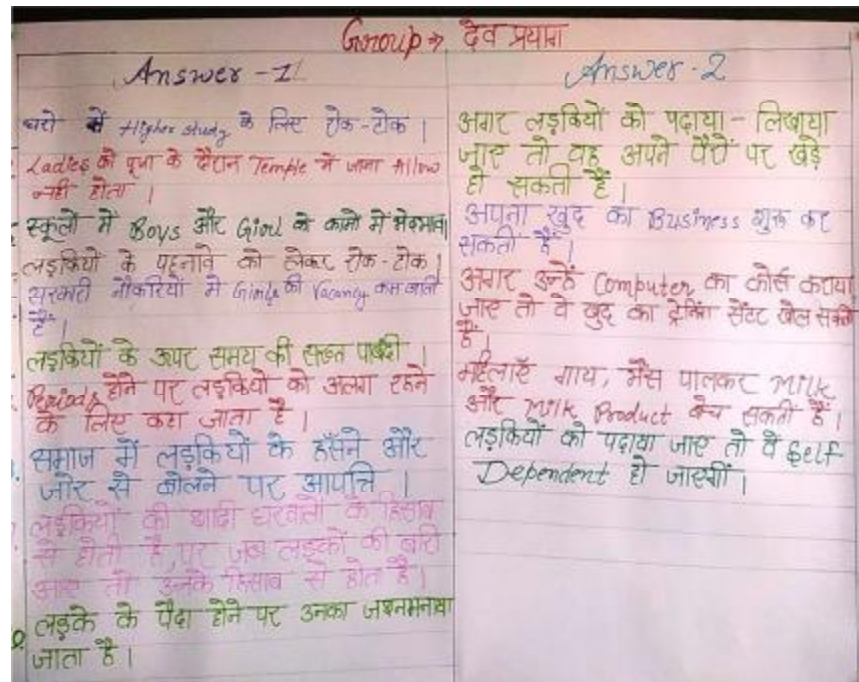 Group → देव प्रयाग
Answer - 1
घरो में Higher study के लिए रोक-टोक |
Ladies को पूजा के दौरान Temple में जाना Allow
नही होता |
स्कूलों में Boys और Girl के कामो में भेदभाव|
लड़कियों के पहनावे को लेकर रोक-टोक |
सरकारी नौकरियों में Girls की Vacancy कम आती
है |
लड़कियों के ऊपर समय की सख्त पाबंदी |
Periods होने पर लड़कियों को अलग रहने
के लिए कहा जाता है |
समाज में लड़कियों के हँसने और
जोर से बोलने पर आपत्ति |
लड़कियों की शादी घरवालो के हिसाब
से होती है, पर जब लड़कों की बारी
आए तो उनके हिसाब से होता है |
लड़के के पैदा होने पर उनका जश्न मनाया
जाता है |
Answer - 2
अगर लड़कियों को पढ़ाया - लिखाया
जाए तो वह अपने पैरों पर खड़े
हो सकती हैं |
अपना खुद का Business शुरू कर
सकती हैं |
अगर उन्हें Computer का कोर्स कराया
जाए तो वे खुद का ट्रेनिंग सेंटर खोल सकती
हैं |
महिलाएँ गाय, भैंस पालकर Milk
और Milk Product बेच सकती हैं |
लड़कियों को पढ़ाया जाए तो वे Self
Dependent हो जाएगीं |